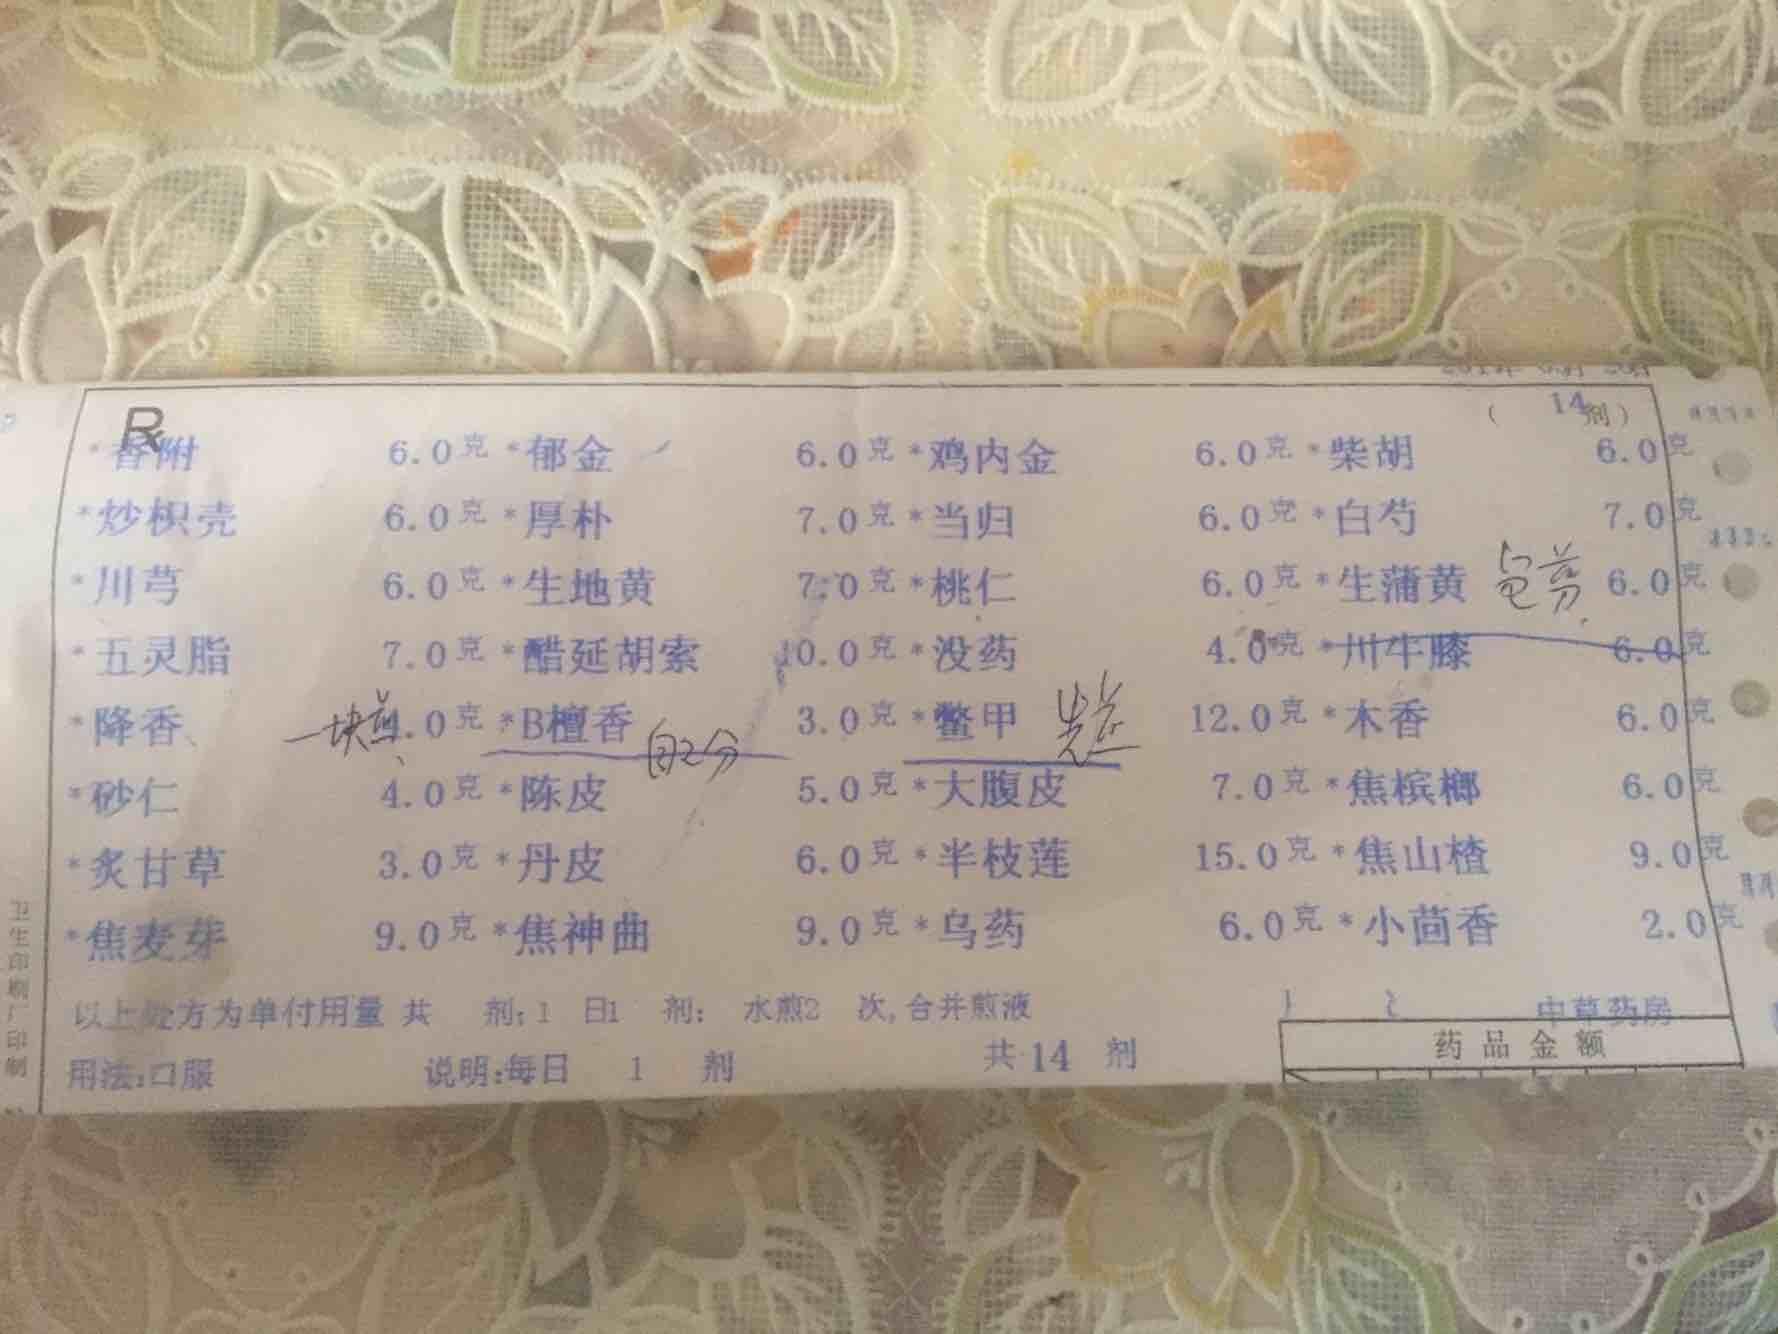 R
( 14剂)
*香附 6.0克 *郁金 6.0克 *鸡内金 6.0克 *柴胡 6.0克
*炒枳壳 6.0克 *厚朴 7.0克 *当归 6.0克 *白芍 7.0克
*川芎 6.0克 *生地黄 7.0克 *桃仁 6.0克 *生蒲黄 包煎 6.0克
*五灵脂 7.0克 *醋延胡索 10.0克 *没药 4.0克 *川牛膝 6.0克
*降香 一块煎 .0克 *B檀香 自己分 3.0克 *鳖甲 先煎 12.0克 *木香 6.0克
*砂仁 4.0克 *陈皮 5.0克 *大腹皮 7.0克 *焦槟榔 6.0克
*炙甘草 3.0克 *丹皮 6.0克 *半枝莲 15.0克 *焦山楂 9.0克
*焦麦芽 9.0克 *焦神曲 9.0克 *乌药 6.0克 *小茴香 2.0克
以上处方为单付用量 共 剂; 1 日1 剂: 水煎2 次,合并煎液 中草药房
用法:口服 说明:每日 1 剂 共14 剂
药品金额
卫生印刷厂印制